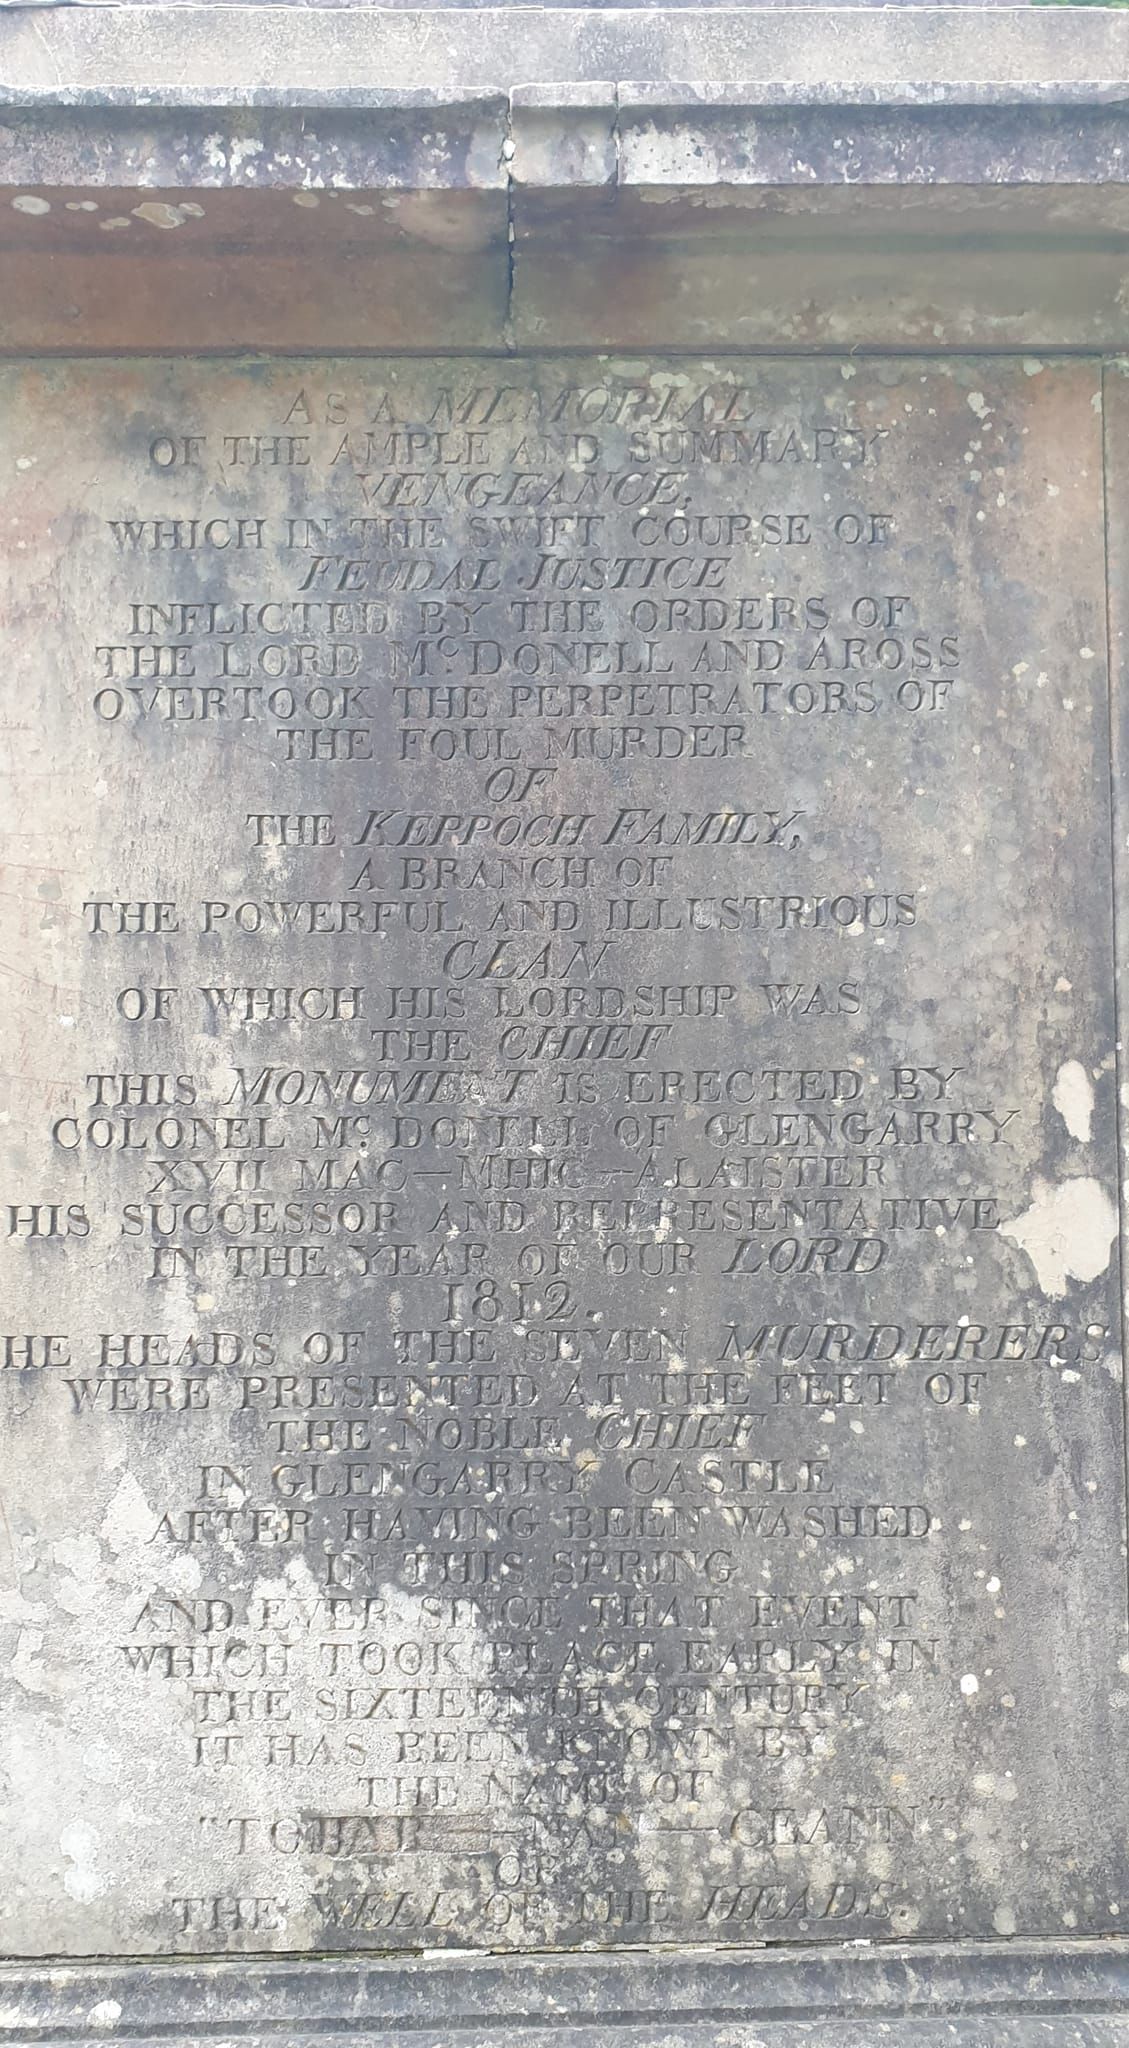 AS A MEMORIAL
OF THE AMPLE AND SUMMARY
VENGEANCE,
WHICH IN THE SWIFT COURSE OF
FEUDAL JUSTICE
INFLICTED BY THE ORDERS OF
THE LORD Mᶜ DONELL AND AROSS
OVERTOOK THE PERPETRATORS OF
THE FOUL MURDER
OF
THE KEPPOCH FAMILY,
A BRANCH OF
THE POWERFUL AND ILLUSTRIOUS
CLAN
OF WHICH HIS LORDSHIP WAS
THE CHIEF
THIS MONUMENT IS ERECTED BY
COLONEL Mᶜ DONELL OF GLENGARRY
XVII MAC—MHIC—ALAISTER
HIS SUCCESSOR AND REPRESENTATIVE
IN THE YEAR OF OUR LORD
1812.
HE HEADS OF THE SEVEN MURDERERS
WERE PRESENTED AT THE FEET OF
THE NOBLE CHIEF
IN GLENGARRY CASTLE
AFTER HAVING BEEN WASHED
IN THIS SPRING
AND EVER SINCE THAT EVENT
WHICH TOOK PLACE EARLY IN
THE SIXTEENTH CENTURY
IT HAS BEEN KNOWN BY
THE NAME OF
"TOBAR—NAN—CEANN"
OR
THE WELL OF THE HEADS.